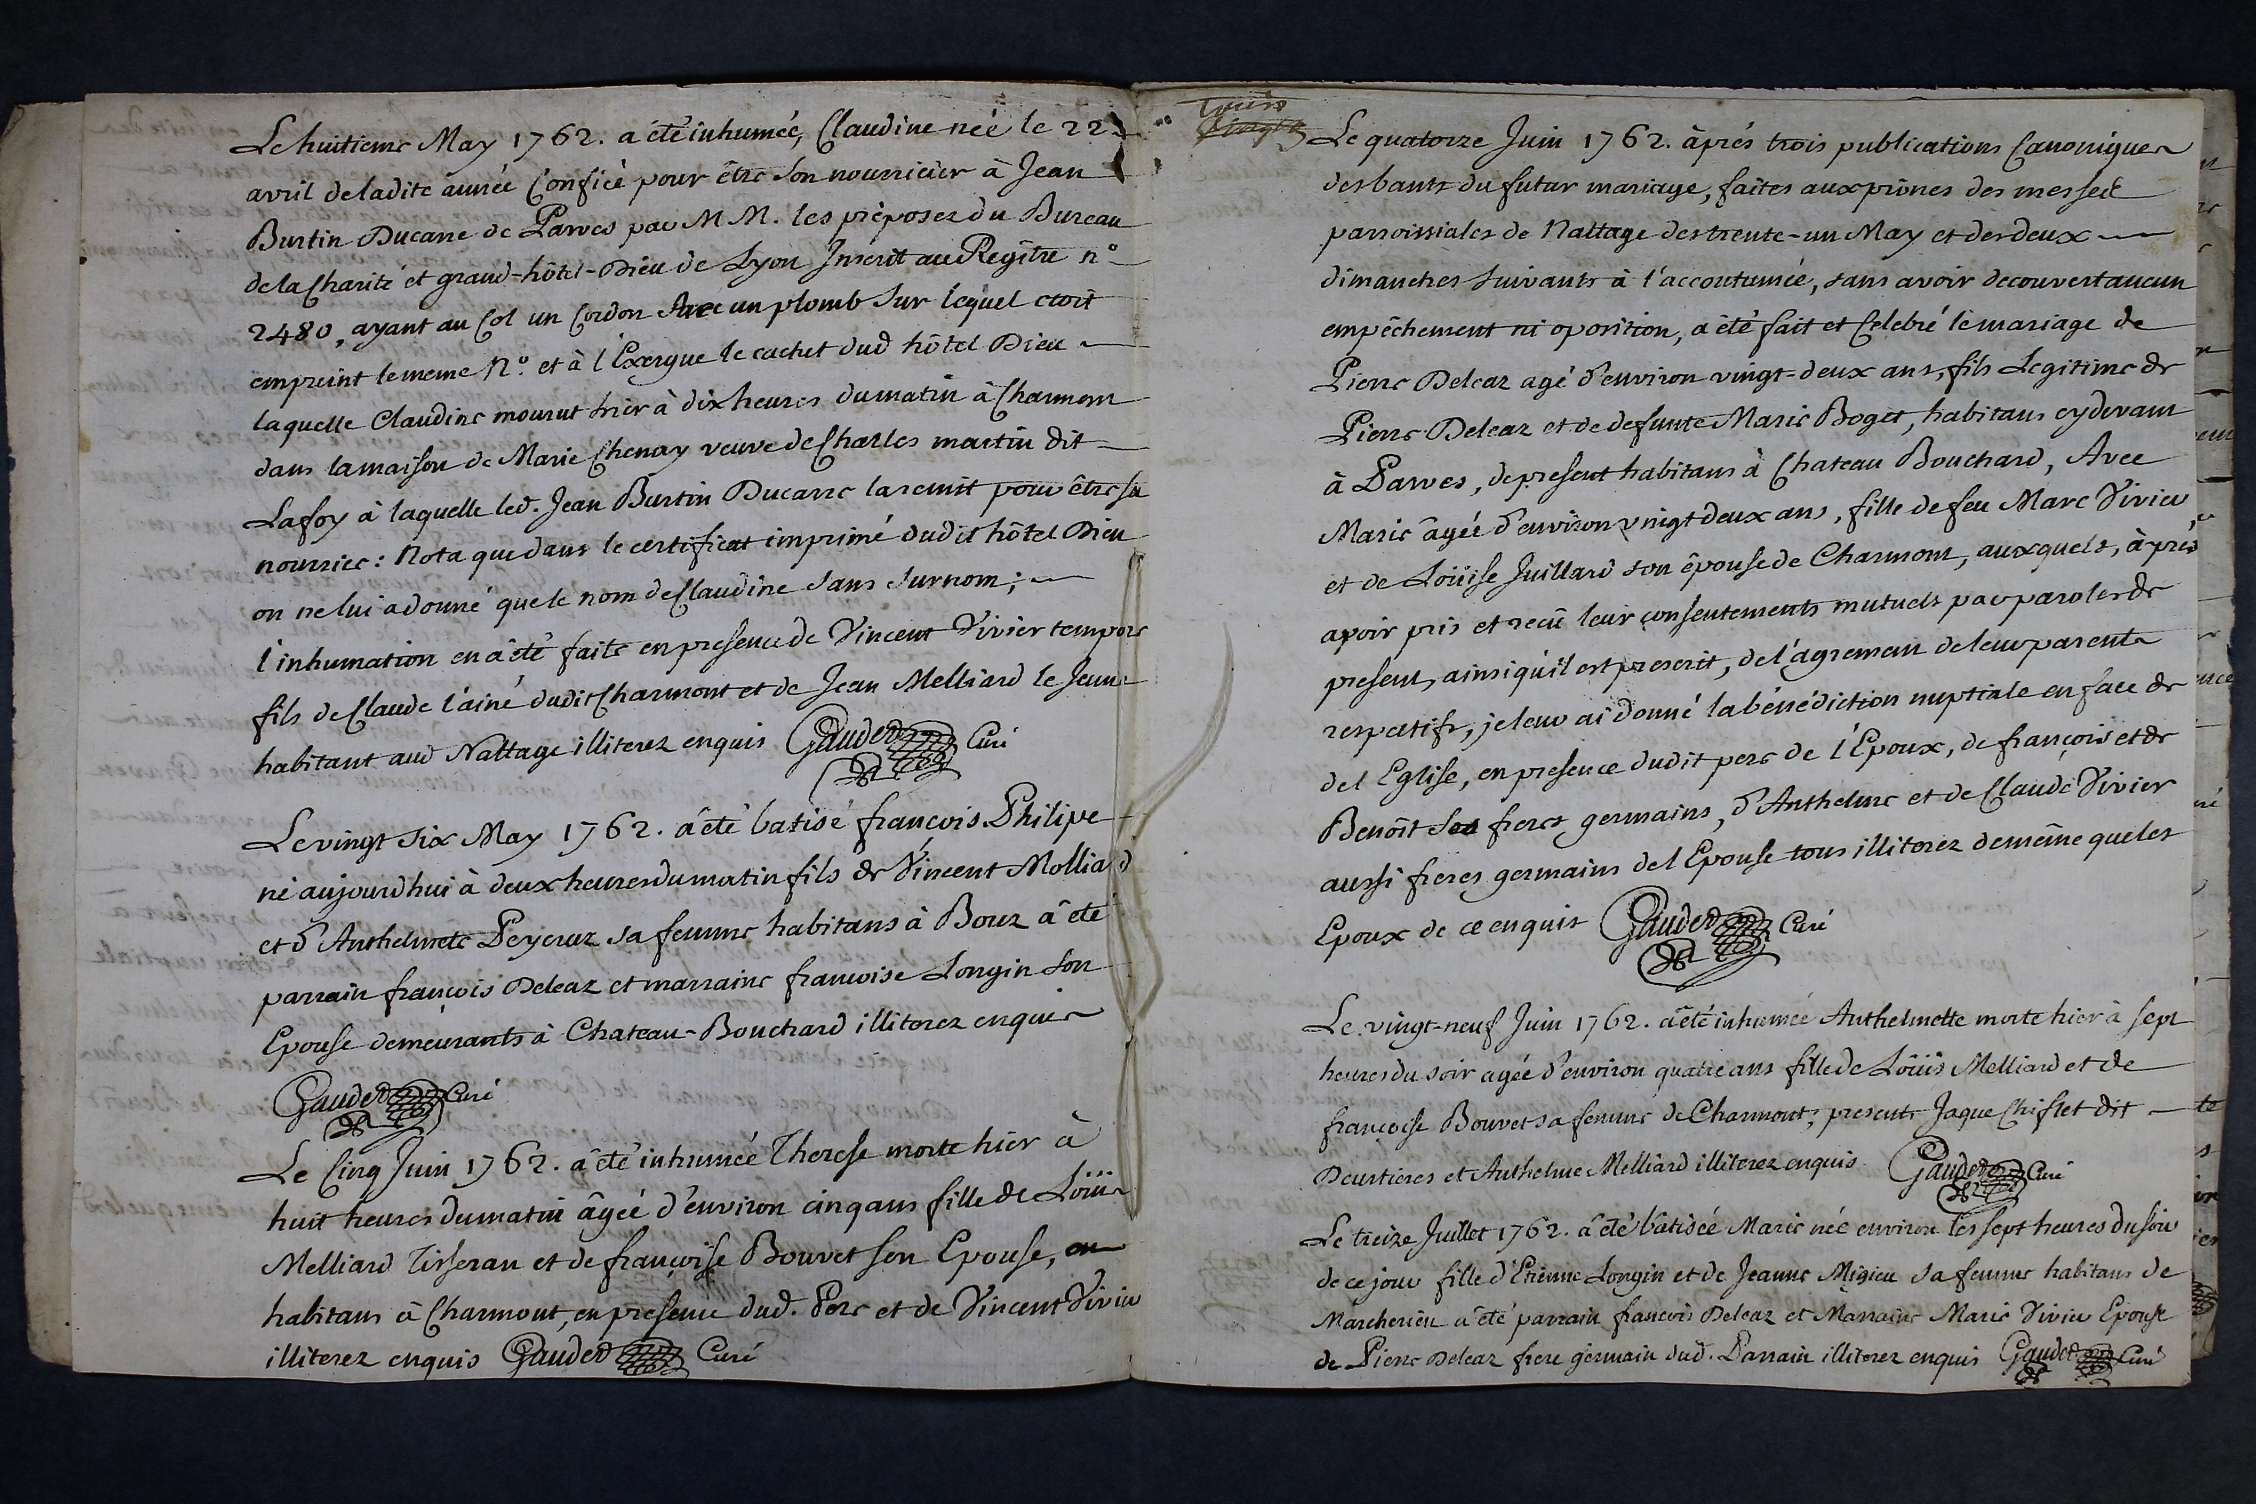 Le huitieme May 1762. a été inhumée, Claudine née le 22
avril de ladite année Confiée pour être son nourricier à Jean
Burtin Ducarre de Parves par M M. les préposez du Bureau
de la Charité et grand-hôtel-Dieu de Lyon Inscrit au Regitre n°
2480, ayant au Col un Cordon Avec un plomb sur lequel etoit
empreint le meme N°. et à l'Exergue le cachet dud hôtel Dieu
laquelle Claudine mourut hier à dix heures du matin à Charmont
dans la maison de Marie Chenay veuve de Charles martin dit
Lafoy à laquelle led. Jean Burtin Ducarre la remit pour être sa
nourrice: Nota que dans le certificat imprimé dudit hôtel Dieu
on ne lui a donné que le nom de Claudine sans surnom;
l'inhumation en a été faite en presence de Vincent Vivier
fils de Claude l'ainé dudit Charmont et de Jean Melliard le Jeune
habitant aud Nattage illiterez enquis Gauded Curé
Le vingt six May 1762. a été batisé françois Philipe
né aujourdhui à deux heures du matin fils de Vincent Molliard
et d'Anthelmete Peyeraz sa femme habitans à Bouz a été
parrain françois Deleaz et marraine francoise Longin son
Epouse demeurants à Chateau-Bouchard illiterez enquis
Gauded Curé
Le Cinq Juin 1762. a été inhumée Therese morte hier à
huit heures du matin âgée d'environ cinq ans fille de Loüis
Melliard Tisseran et de françoise Bouvet son Epouse,
habitans à Charmont, en presence dud. Pere et de Vincent Vivier
illiterez enquis Gauded Curé
Le quatorze Juin 1762. àprés trois publications Canoniques
des bants du futur mariage, faites aux prônes des messes
parroissiales de Nattage des trente-un May et des deux
dimanches suivants à l'accoutumée, sans avoir decouvert aucun
empêchement ni oposition, a été fait et Celebré le mariage de
Pierre Deleaz agé d'environ vingt-deux ans, fils Legitime de
Pierre Deleaz et de defunte Marie Boget, habitans cydevant
à Parves, de present habitans à Chateau Bouchard, Avec
Marie âgée d'environ vingt deux ans, fille de feu Marc Vivier
et de Loüise Juillard son épouse de Charmont, auxquels, àprés
avoir pris et recû leur consentements mutuels par paroles de
present, ainsi qu'il est prescrit, de l'agrement de leur parents
respectifs, je leur ai donné la bénédiction nuptiale en face de
del Eglise, en presence dudit pere de l'Epoux, de françois et de
Benoît ses freres germains, d'Anthelme et de Claude Vivier
aussi freres germains del Epouse tous illiterez de même que les
Epoux de ce enquis Gauded Curé
Le vingt-neuf Juin 1762. a été inhumée Anthelmette morte hier à sept
heures du soir agée d'environ quatre ans fille de Loüis Melliard et de
françoise Bouvet sa femme de Charmont; presents Jaque Chiflet dit
Deurtieres et Anthelme Melliard illiterez enquis Gauded Curé
Le treize Juillet 1762. a été batisée Marie née environ les sept heures du soir
de ce jour fille d'Etienne Longin et de Jeanne Migieu sa femme habitans de
Marcherieu a été parrain francois Deleaz et Marraine Marie Vivier Epouse
de Pierre Deleaz frere germain dud. Parrain illiterez enquis Gauded Curé